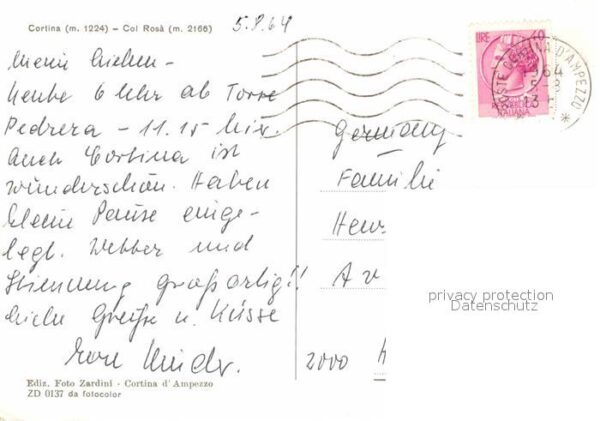 Cortina (m. 1224) - Col Rosà (m. 2166)
5.8.64
Meine Lieben -
Heute 6 Uhr ab Torre
Pedrera - 11.15 hier.
Auch Cortina ist
wunderschön. Haben
kleine Pause einge-
legt. Wetter und
Stimmung großartig!!
Liebe Grüße u. Küsse
Eure Kinder.
Ediz. Foto Zardini - Cortina d'Ampezzo
ZD 0137 da fotocolor
LIRE 40
ITALIANA
POSTE CORTINA D'AMPEZZO
Germany
Familie
2000
privacy protection
Datenschutz